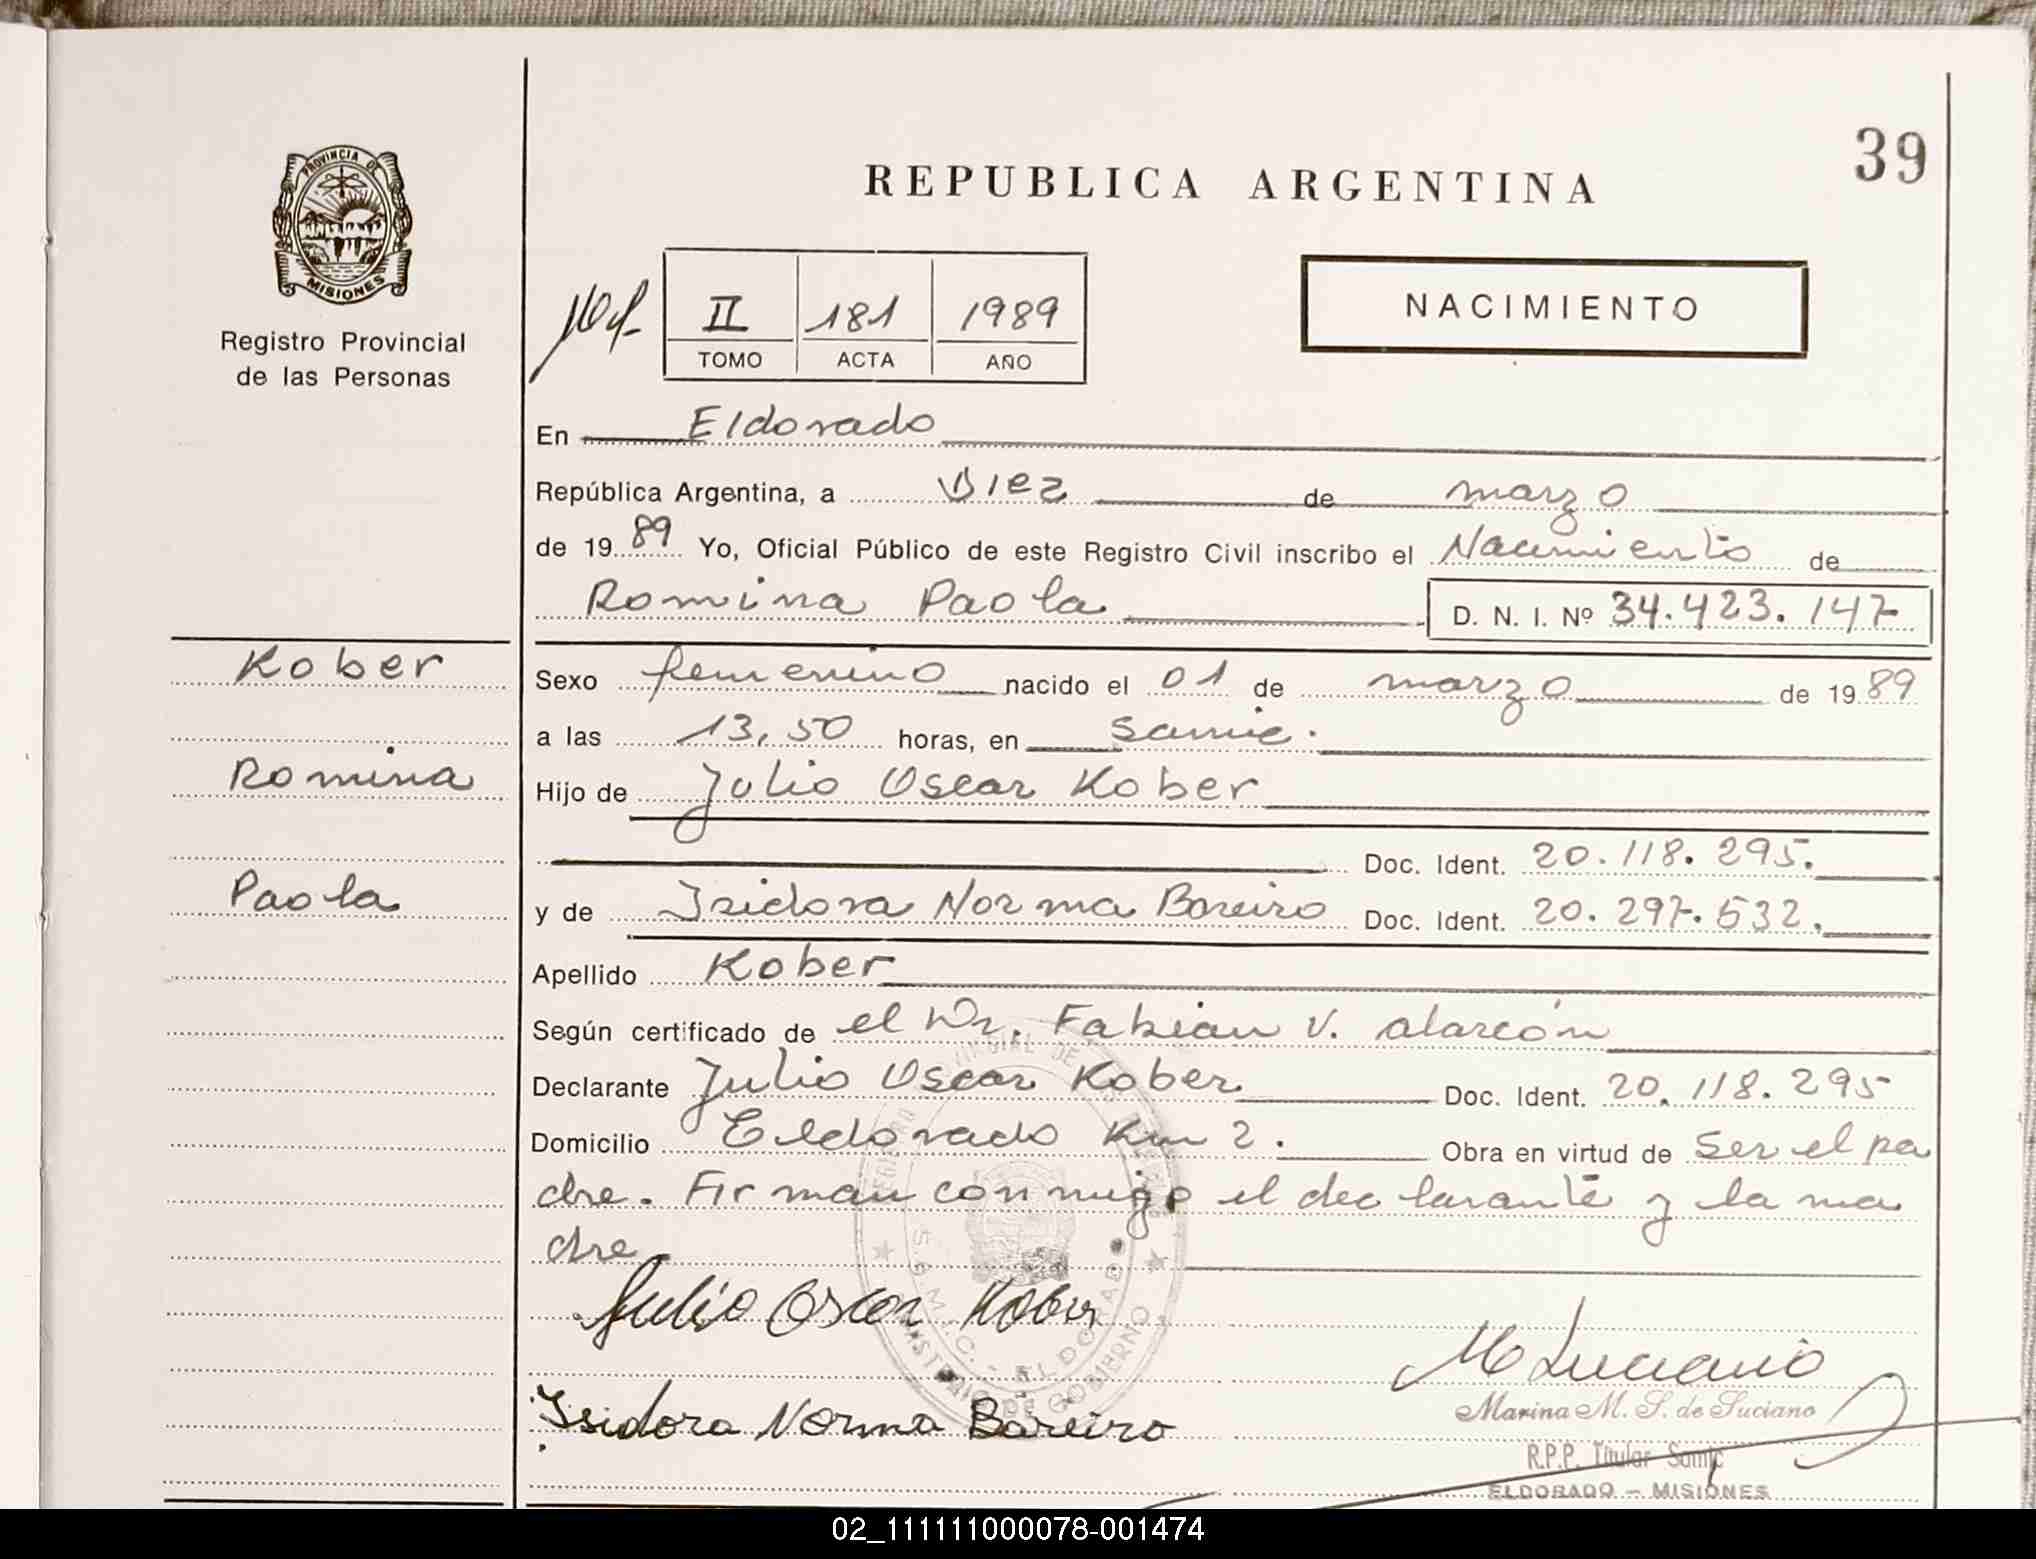 39
REPUBLICA ARGENTINA
PROVINCIA DE
MISIONES
Registro Provincial
de las Personas
II 181 1989
TOMO ACTA AÑO
NACIMIENTO
En Eldorado
República Argentina, a Diez de marzo
de 1989 Yo, Oficial Público de este Registro Civil inscribo el Nacimiento de
Romina Paola D. N. I. Nº 34.423.147
Kober
Romina
Paola
Sexo femenino nacido el 01 de marzo de 1989
a las 13,50 horas, en Samic.
Hijo de Julio Oscar Kober
Doc. Ident. 20.118.295.
y de Isidora Norma Bareiro Doc. Ident. 20.297.532.
Apellido Kober
Según certificado de el Dr. Fabian V. Alarcón
Declarante Julio Oscar Kober Doc. Ident. 20.118.295
Domicilio Eldorado Km 2. Obra en virtud de Ser el pa
dre. Firman conmigo el declarante y la ma
dre
Julio Oscar Kober
M Luciano
Marina M. S. de Luciano
Isidora Norma Bareiro
R.P.P. Titular Samic
ELDORADO - MISIONES
S.A.M.I.C. - ELDORADO
MINISTERIO DE GOBIERNO
02_111111000078-001474